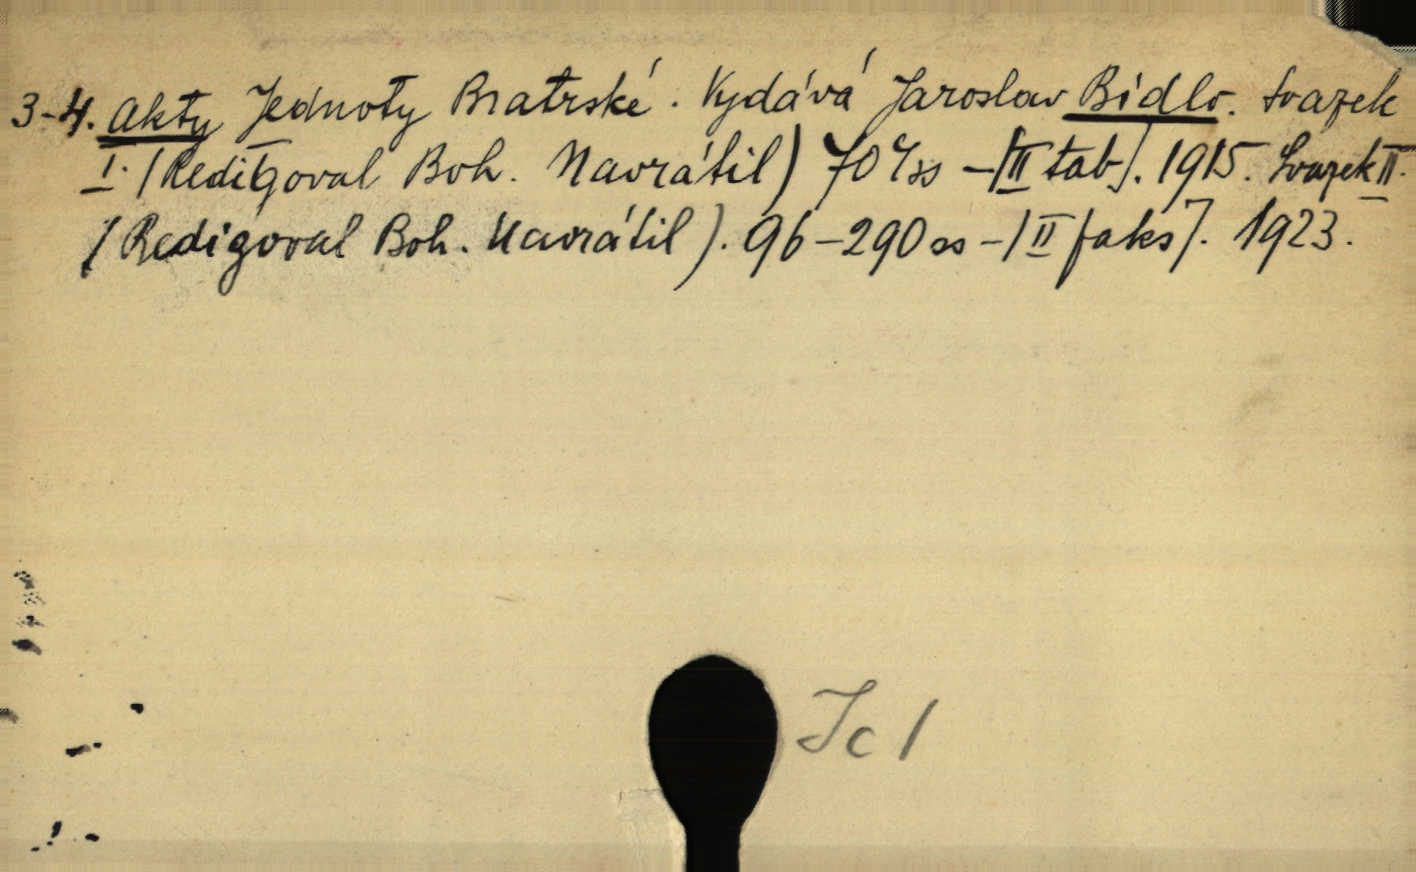 3-4. Akty Jednoty Bratrské. Vydává Jaroslav Bidlo. Svazek
I. (Redigoval Boh. Navrátil) 709 ss - [II tab]. 1915. Svazek II.
(Redigoval Boh. Navrátil). 96-290 ss - [II faks]. 1923.
Jc 1